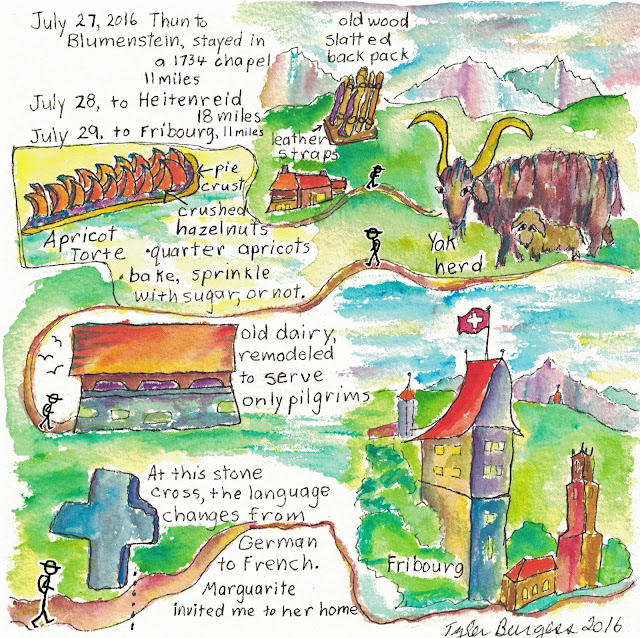 July 27, 2016 Thun to
Blumenstein, stayed in
a 1734 chapel
11 miles
July 28, to Heitenreid
18 miles
July 29, to Fribourg, 11 miles
old wood
slatted
back pack
leather
straps
pie
crust
crushed
hazelnuts
Apricot
Torte
• quarter apricots
• bake, sprinkle
with sugar, or not.
Yak
herd
old dairy,
remodeled
to serve
only pilgrims
At this stone
cross, the language
changes from
German
to French.
Marguarite
invited me to her home
Fribourg
Tyler Burgess 2016